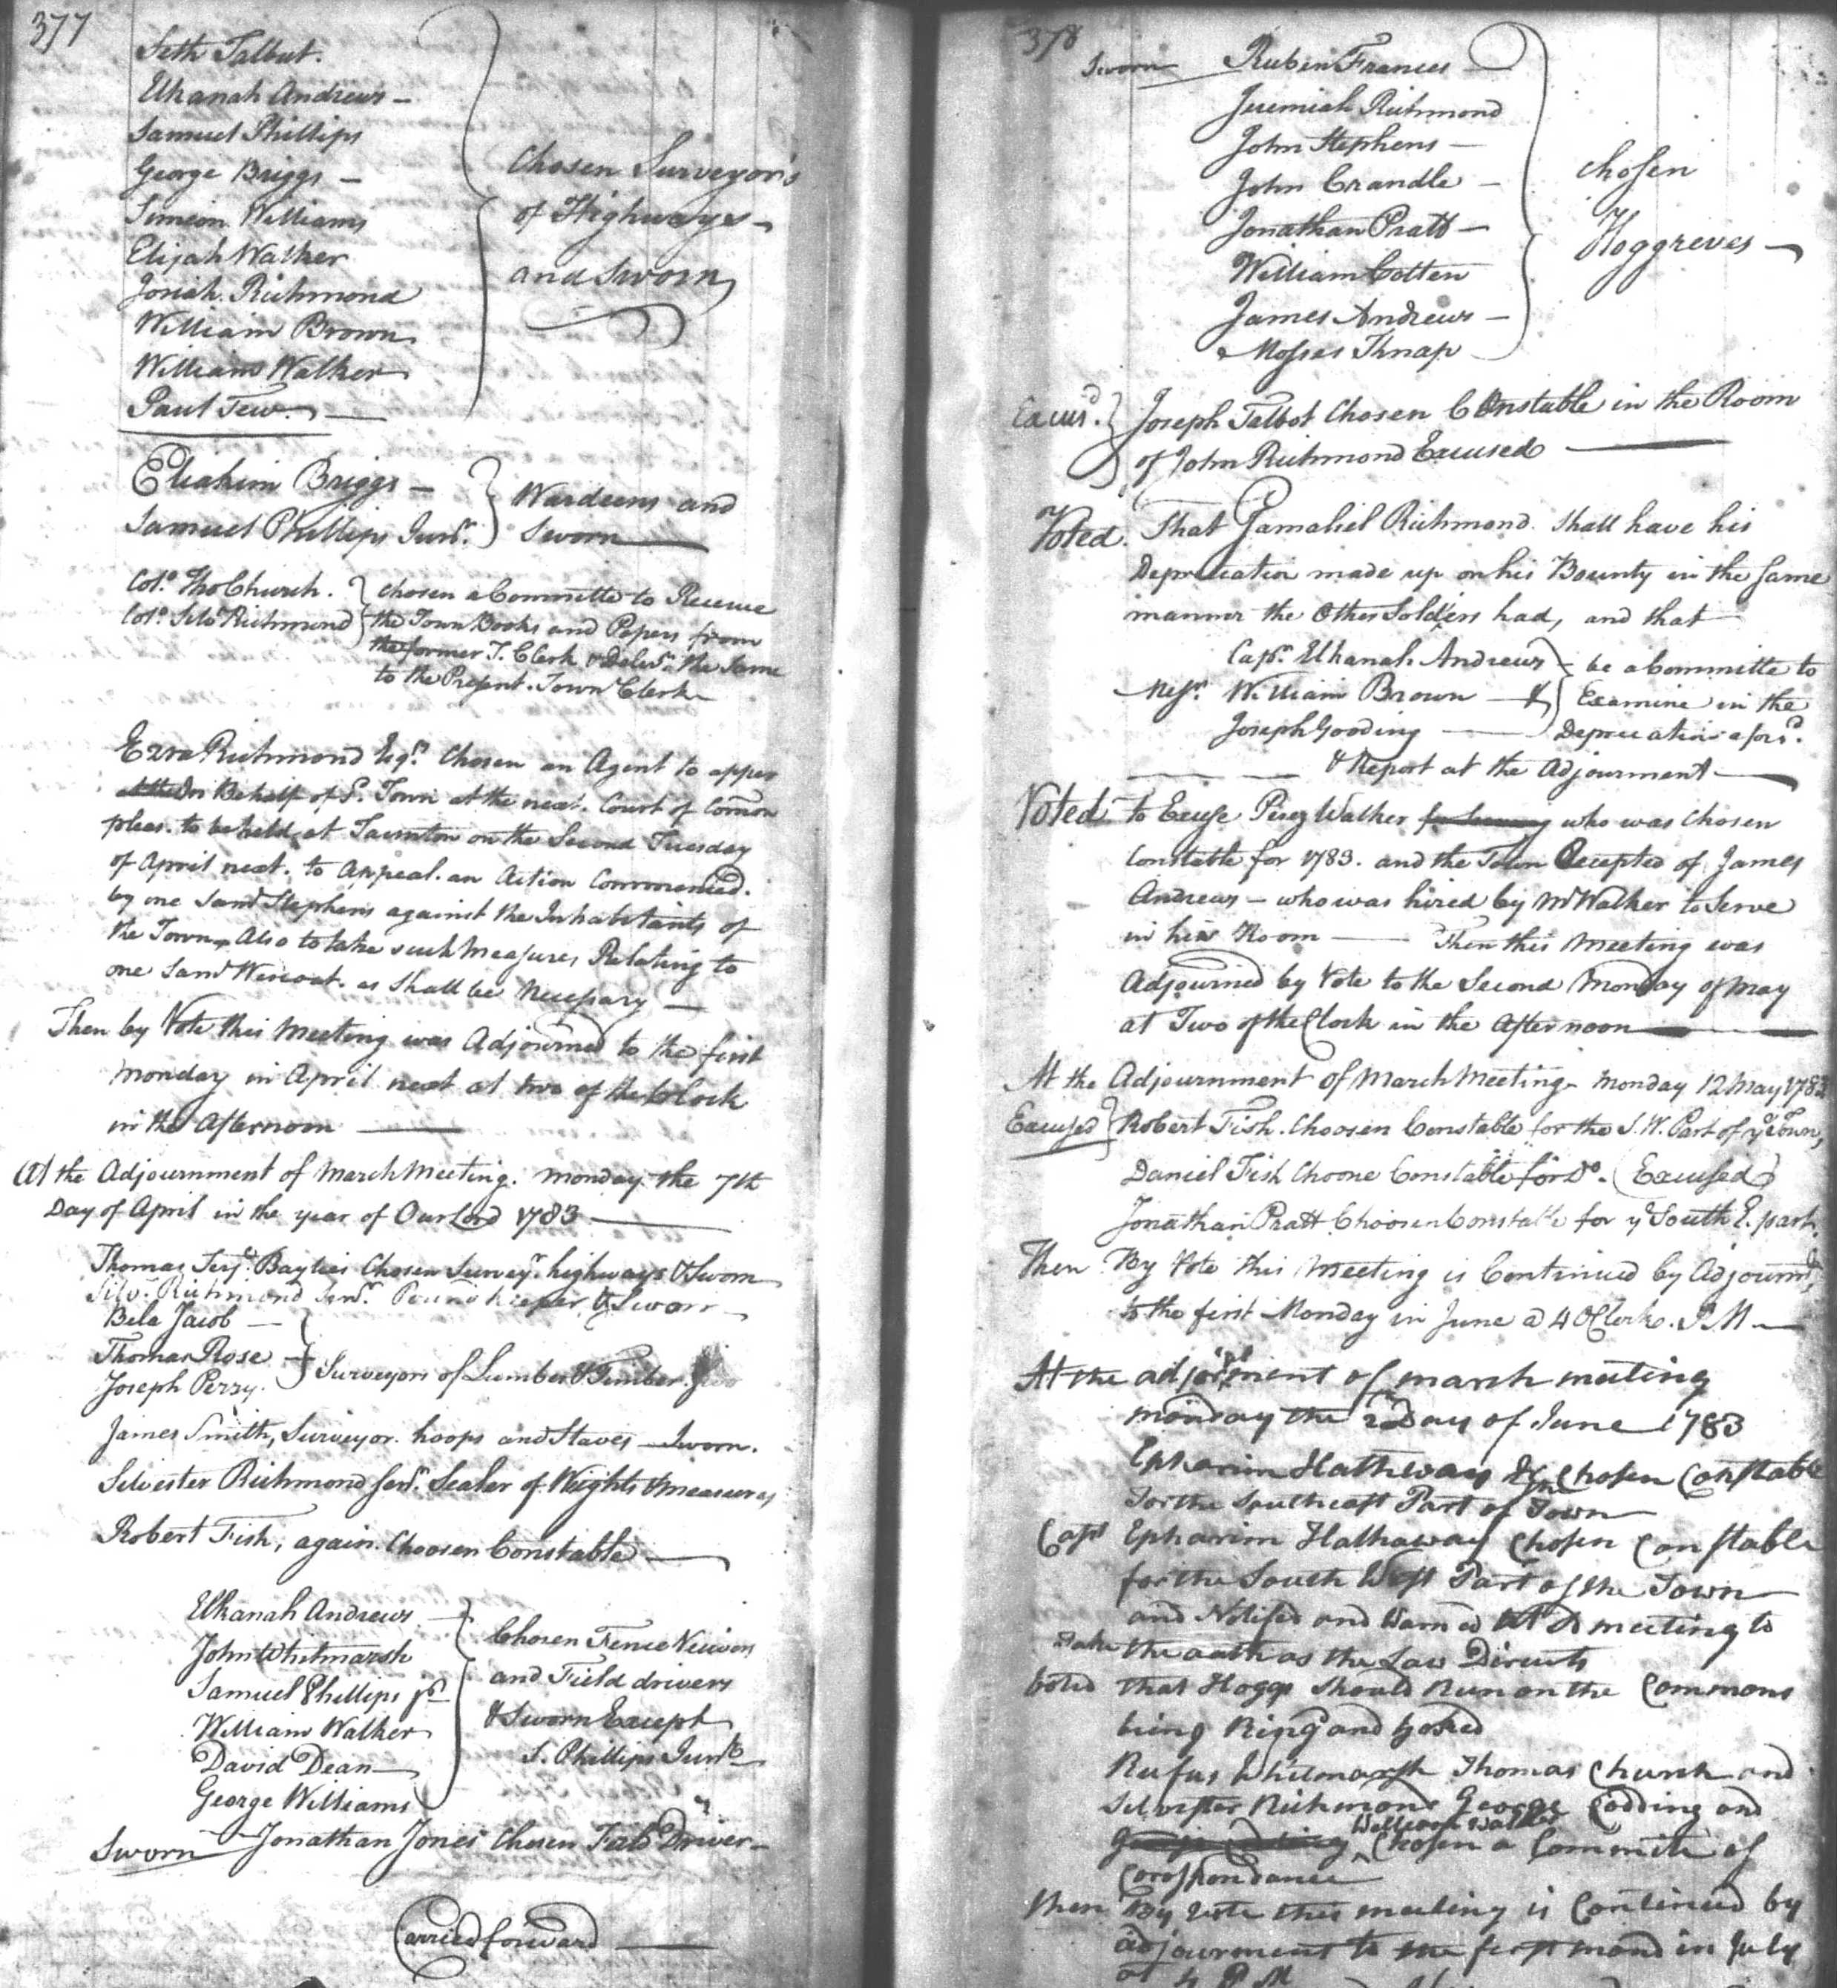 377
Seth Talbut.
Elkanah Andrews —
Samuel Phillips
George Briggs —
Simeon Williams
Elijah Walker
Josiah Richmond
William Brown
William Walker
Paul Tew. —
Chosen Surveyor's
of Highways —
and Sworn
Eliakim Briggs —
Samuel Phillips Junr.
Wardeens and
Sworn
Colo. Tho Church.
Colo. Silvr Richmond
chosen a Committe to Receive
the Town Books and Papers from
the former T. Clerk & Delivr the Same
to the Present Town Clerk
Ezra Richmond Esqr. Chosen an Agent to apper
on Behalf of sd. Town at the next Court of Comon
pleas. to be held at Taunton on the Second Tuesday
of April next. to Appeal. an Action Commenced.
by one Saml Stephens against the Inhabitants of
the Town, Also to take such Measures Relating to
one Saml Wincoat. as Shall be Necessary —
Then by Vote this Meeting was Adjourned to the first
Monday in April next at two of the Clock
in the Afternoon —
At the Adjournment of March Meeting. Monday the 7th
Day of April in the year of Our Lord 1783 —
Thomas Serjt. Baylies Chosen Surveyr. highways & Sworn
Silvr. Richmond Senr. Pound keeper, & Sworn —
Bela Jacob —
Thomas Rose —
Joseph Perry.
Surveyors of Lumber & Timber.
James Smith, Surveyor. hoops and Staves — Sworn.
Silvester Richmond Senr. Sealer of Weights & measures
Robert Fish, again Choosen Constable —
Elkanah Andrews —
John Whitmarsh
Samuel Phillips jr
William Walker
David Dean —
George Williams
Chosen Fence Viewors
and Field drivers
& Sworn Except
S. Phillips Junr
Sworn — Jonathan Jones Chosen Feild Driver —
Carried forward —
378
Sworn Rubin Frances —
Jeremiah Richmond
John Stephens —
John Crandle —
Jonathan Pratt —
William Cotten
James Andrews —
Mosses Knap
chosen
Hoggreves —
Excusd. Joseph Talbot Chosen Constable in the Room
of John Richmond Excused —
Voted. That Gamaliel Richmond Shall have his
Depreciation made up on his Bounty in the Same
manner the Other Soldiers had, and that
Capn. Elkanah Andrews
Messr. William Brown — &
Joseph Gooding —
be a Committe to
Examine in the
Depreciation aforsd.
& Report at the Adjournment —
Voted to Excuse Perez Walker for Serving who was Chosen
Constable for 1783. and the Town Accepted of James
Andrews — who was hired by Mr Walker to Serve
in his Room — Then this Meeting was
Adjourned by Vote to the Second Monday of May
at Two of the Clock in the Afternoon —
At the Adjournment of March Meeting Monday 12 May 1783
Excused Robert Fish. Choosen Constable for the S.W. Part of ye Town,
Daniel Fish Choone Constable for Do. (Excused)
Jonathan Pratt Choosen Constable for ye South E. part
Then By Vote this Meeting is Continued by Adjournmt
to the first Monday in June a 4 OClock. P.M —
At the adjornment of march meeting
monday the 2 Day of June 1783
Epharim Hathway chosen Constable
for the Southeast Part of Town
Capt Epharim Hathaway Chosen Constable
for the South West Part of the Town
and Notifed and Warned at sd meeting to
Take the oath as the Law Directs
voted that Hoggs should Run on the Commons
being Ringd and yoked
Rufus Whitmarsh Thomas Church and
Silvester Richmond George Codding and
William Walker
Chosen a Committe of
Corospondance
then By vote this meeting is Continued by
adjourment to the first mond in July
at 4 P M